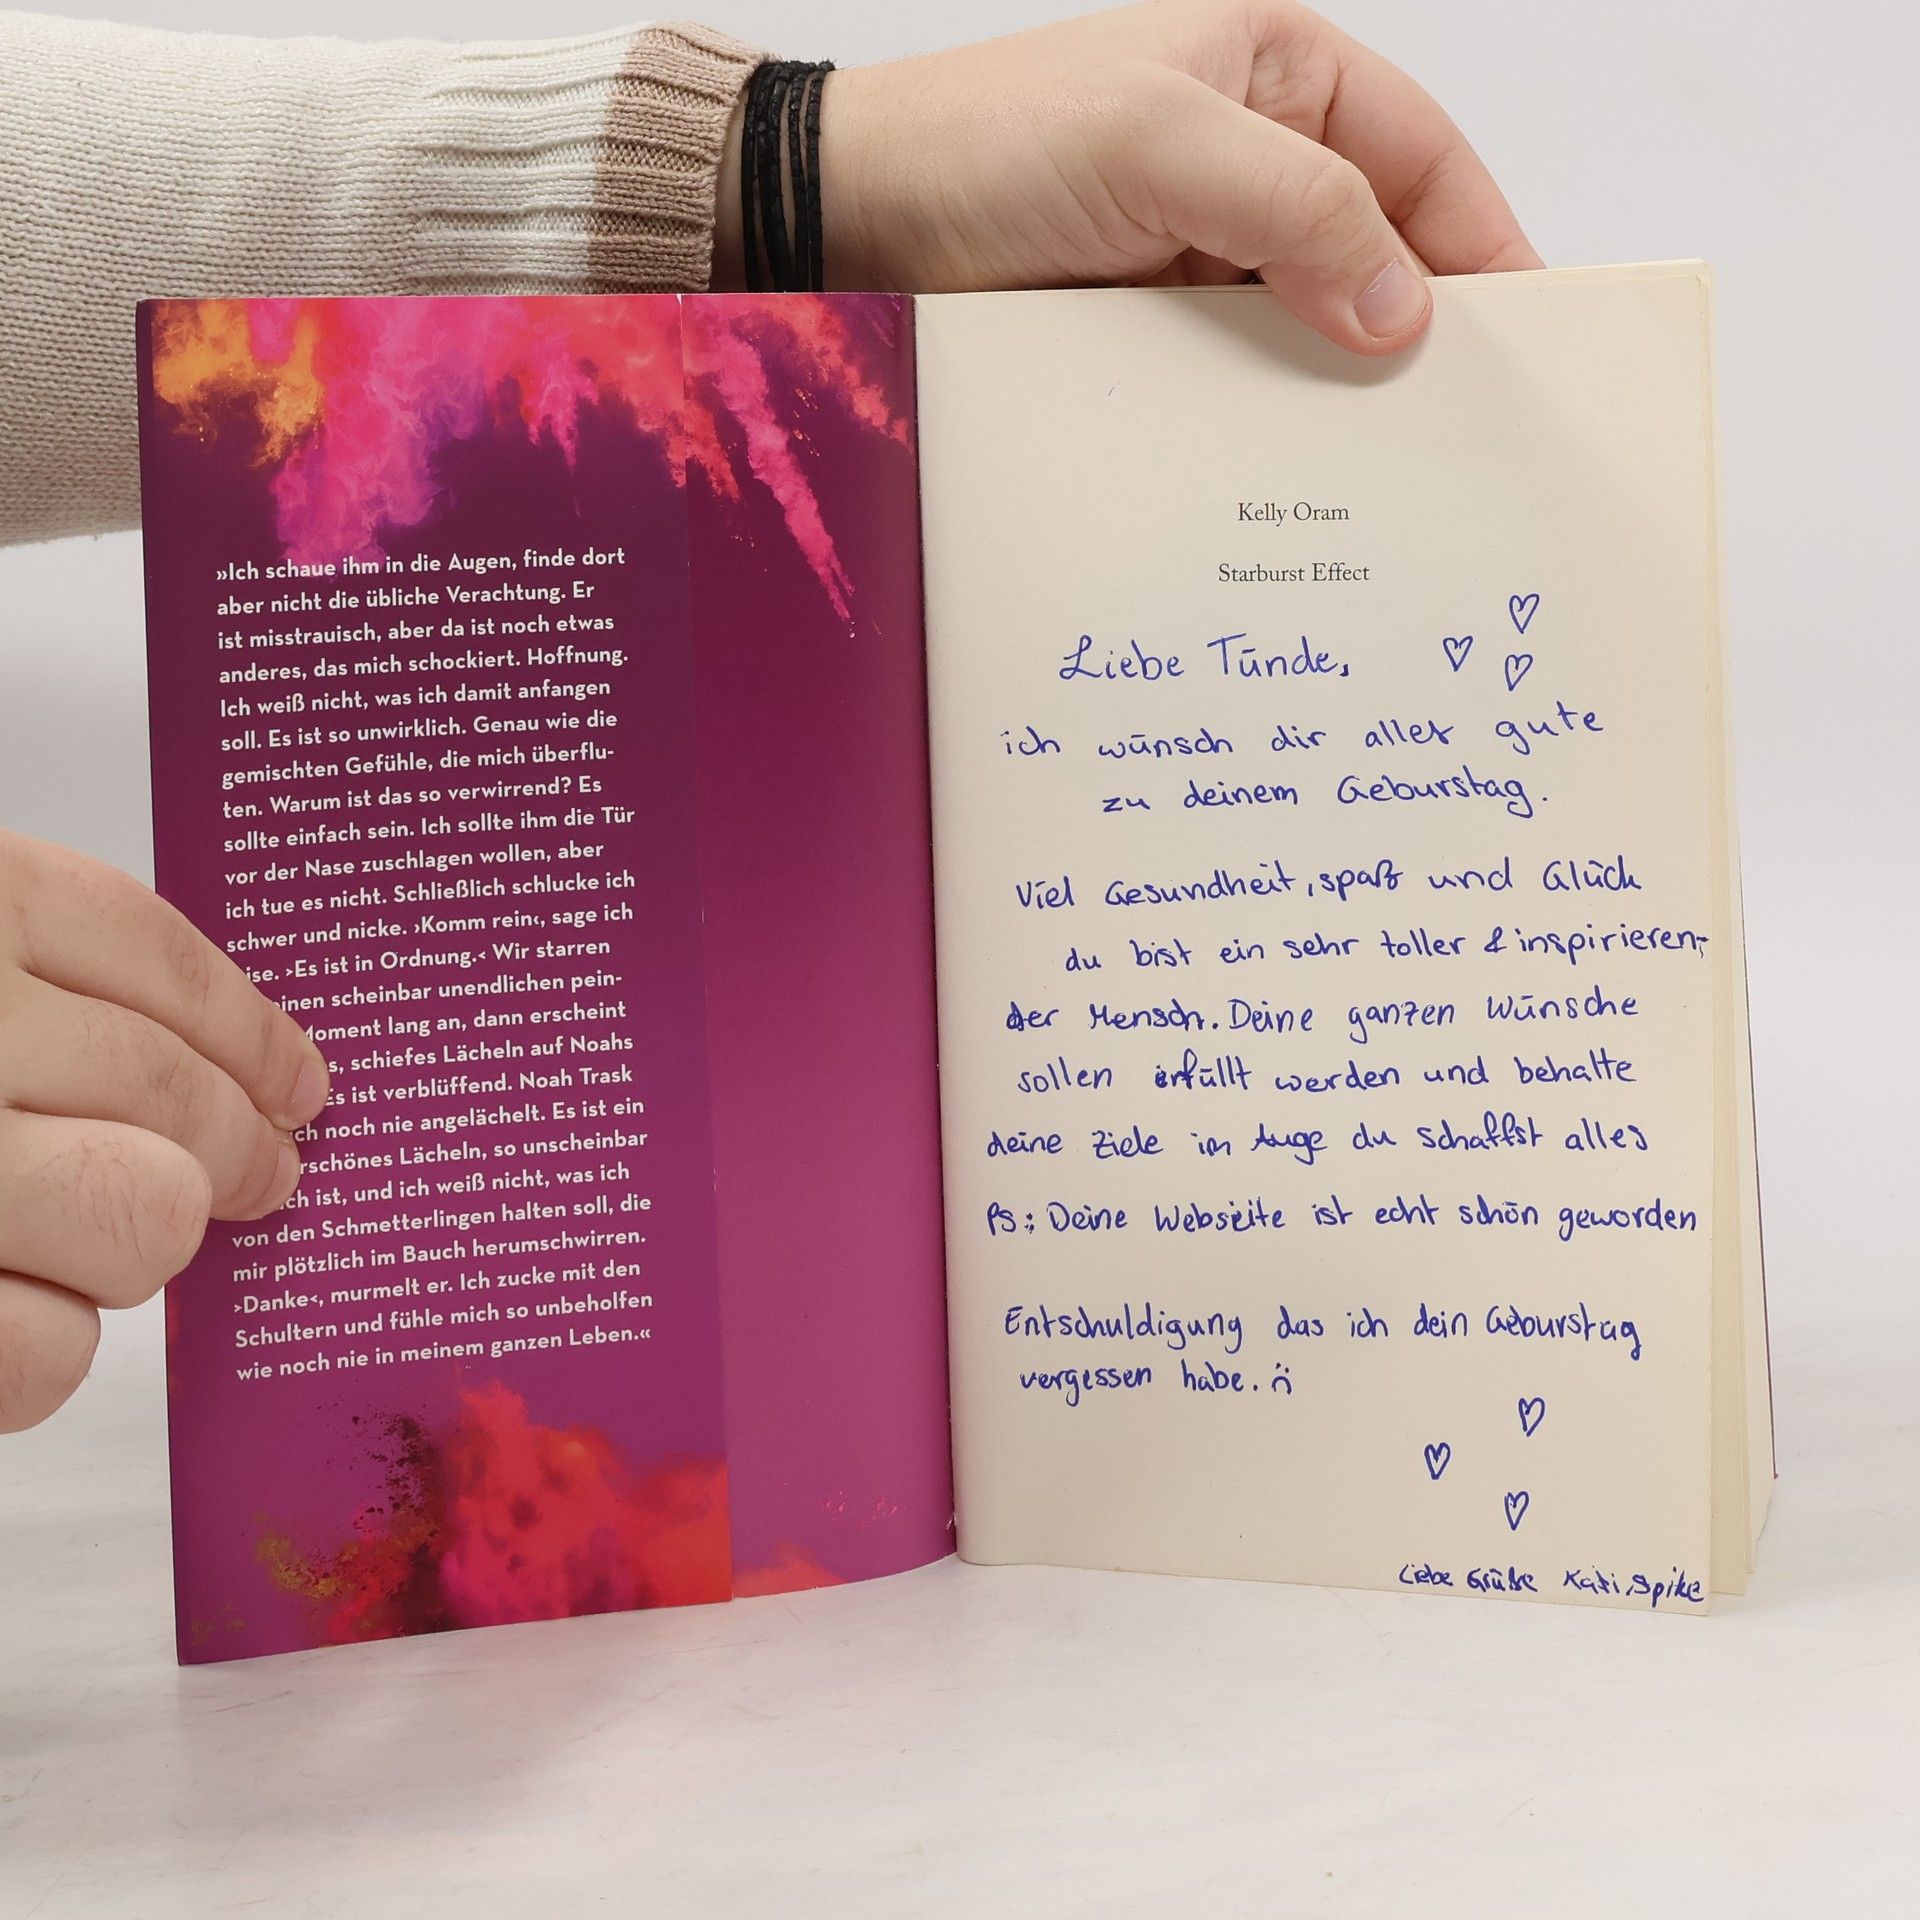 »Ich schaue ihm in die Augen, finde dort
aber nicht die übliche Verachtung. Er
ist misstrauisch, aber da ist noch etwas
anderes, das mich schockiert. Hoffnung.
Ich weiß nicht, was ich damit anfangen
soll. Es ist so unwirklich. Genau wie die
gemischten Gefühle, die mich überflu-
ten. Warum ist das so verwirrend? Es
sollte einfach sein. Ich sollte ihm die Tür
vor der Nase zuschlagen wollen, aber
ich tue es nicht. Schließlich schlucke ich
schwer und nicke. ›Komm rein‹, sage ich
ise. ›Es ist in Ordnung.‹ Wir starren
inen scheinbar unendlichen pein-
Moment lang an, dann erscheint
s, schiefes Lächeln auf Noahs
Es ist verblüffend. Noah Trask
ch noch nie angelächelt. Es ist ein
rschönes Lächeln, so unscheinbar
ch ist, und ich weiß nicht, was ich
von den Schmetterlingen halten soll, die
mir plötzlich im Bauch herumschwirren.
›Danke‹, murmelt er. Ich zucke mit den
Schultern und fühle mich so unbeholfen
wie noch nie in meinem ganzen Leben.«
Kelly Oram
Starburst Effect
Liebe Tünde,
ich wünsch dir alles gute
zu deinem Geburstag.
Viel Gesundheit, spaß und Glück
du bist ein sehr toller & inspirieren-
der Mensch. Deine ganzen Wünsche
sollen erfüllt werden und behalte
deine Ziele im Auge du schaffst alles
PS.: Deine Webseite ist echt schön geworden
Entschuldigung das ich dein Geburstag
vergessen habe.
Liebe Grüße Kati, Spike